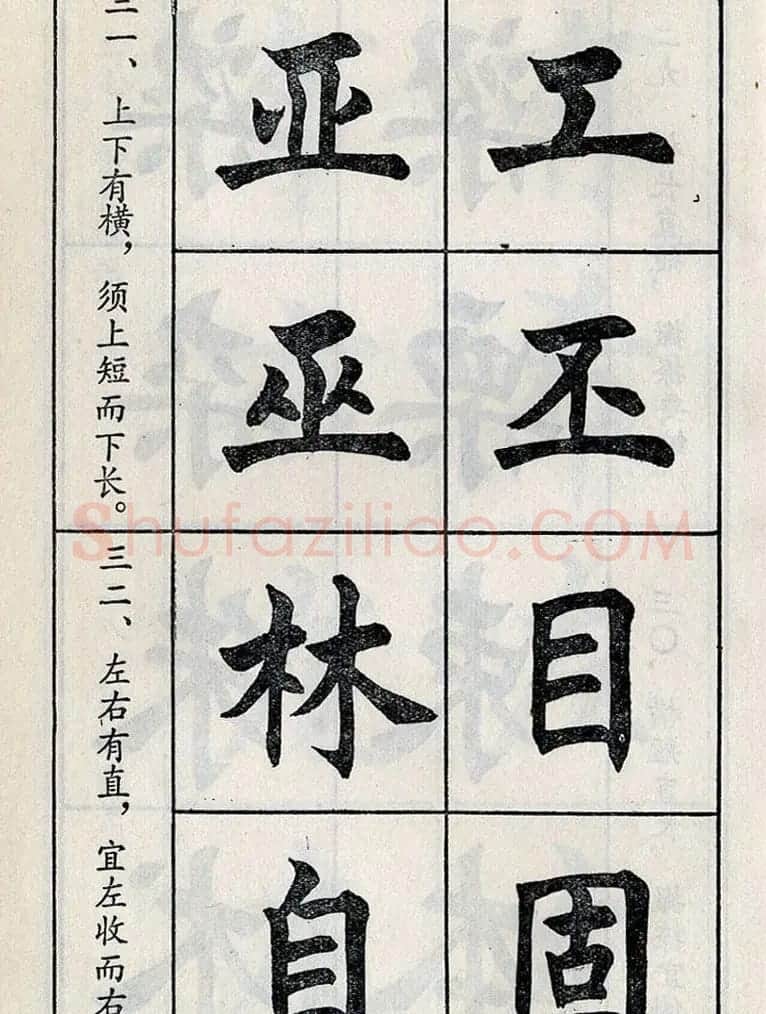 三一、上下有横，须上短而下长。
工亚
丕巫
三二、左右有直，宜左收而右
目林
固自
Shufaziliao.COM